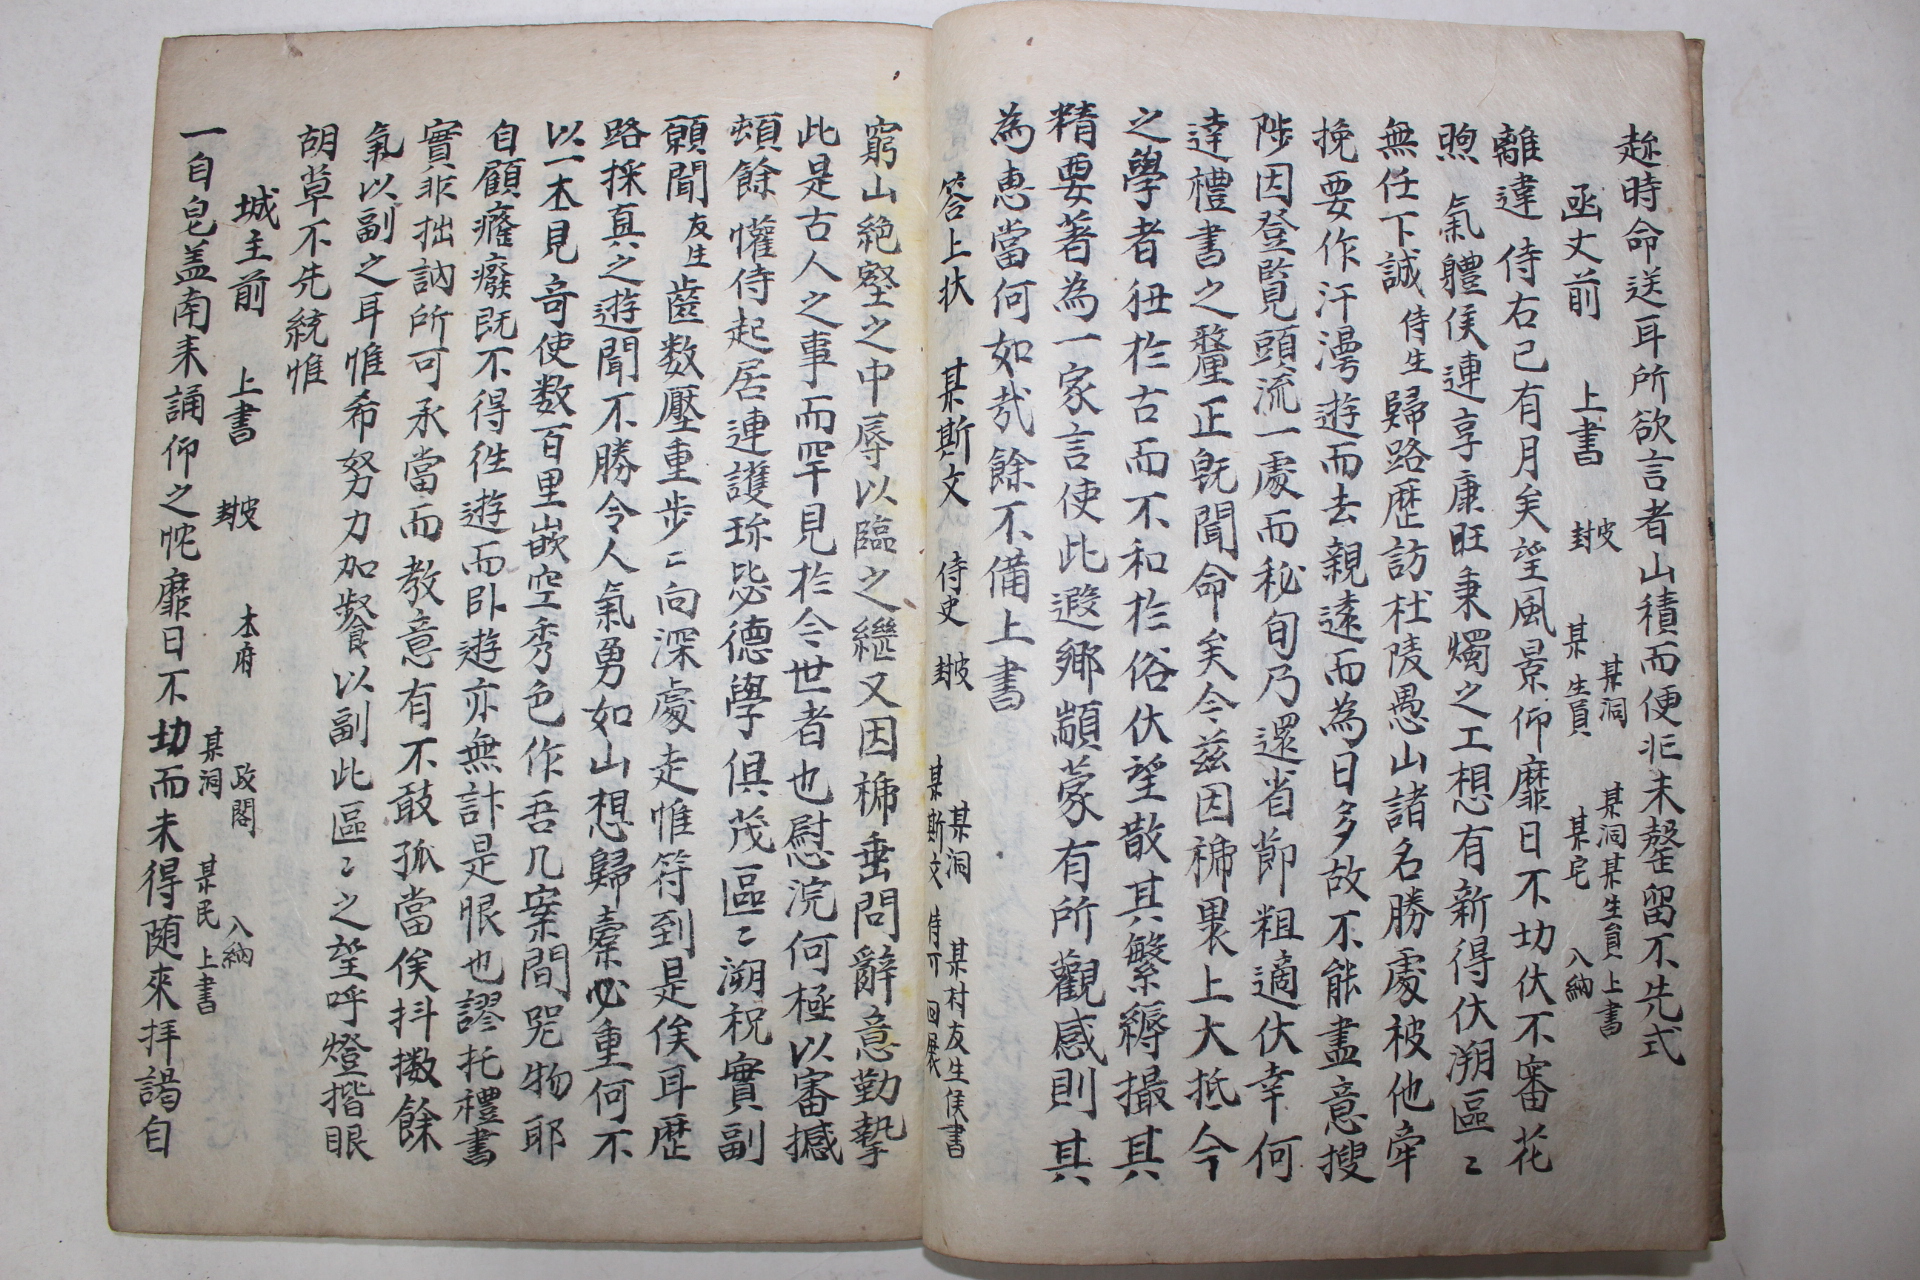 趂時命送耳所欲言者山積而便非未罄留不先式
函丈前 上書 皮封 某生員 某宅 入納
某洞 某洞某生員上書
離違 侍右已有月矣望風景仰靡日不切伏不審花
煦 氣體侯連享康旺秉燭之工想有新得伏溯區〻
無任下誠侍生歸路歷訪杜陵愚山諸名勝處被他牽
挽要作汗漫遊而去親遠而為日多故不能盡意搜
陟因登覽頭流一處而秘旬乃還省節粗適伏幸何
達禮書之釐正旣聞命矣今玆因褫裏上大抵今
之學者狃於古而不和於俗伏望散其繁縟撮其
精要著為一家言使此遐鄉顓蒙有所觀感則其
為惠當何如哉餘不備上書
答上狀 某斯文 侍史 皮封 某洞 某村友生侯書
某斯文 侍可 回展
窮山絶壑之中辱以臨之繼又因梯垂問辭意勤摯
此是古人之事而罕見於今世者也慰浣何極以審撼
頓餘懽侍起居連護珎毖德學俱茂區〻溯祝實副
願聞友生齒数壓重步〻向深處走惟符到是俟耳歷
路採真之遊聞不勝令人氣勇如山想歸橐必重何不
以一木見奇使数百里嵌空秀色作吾几案間呪物耶
自顧癃癈旣不得徃遊而卧遊亦無計是恨也謬托禮書
實非拙訥所可承當而教意有不敢孤當俟抖擻餘
氣以副之耳惟希努力加餐以副此區〻之望呼燈揩眼
胡草不先統惟
城主前 上書 皮封 本府 政閣 入納
某洞 某民 上書
一自皂盖南來誦仰之忱靡日不切而未得随來拜謁自